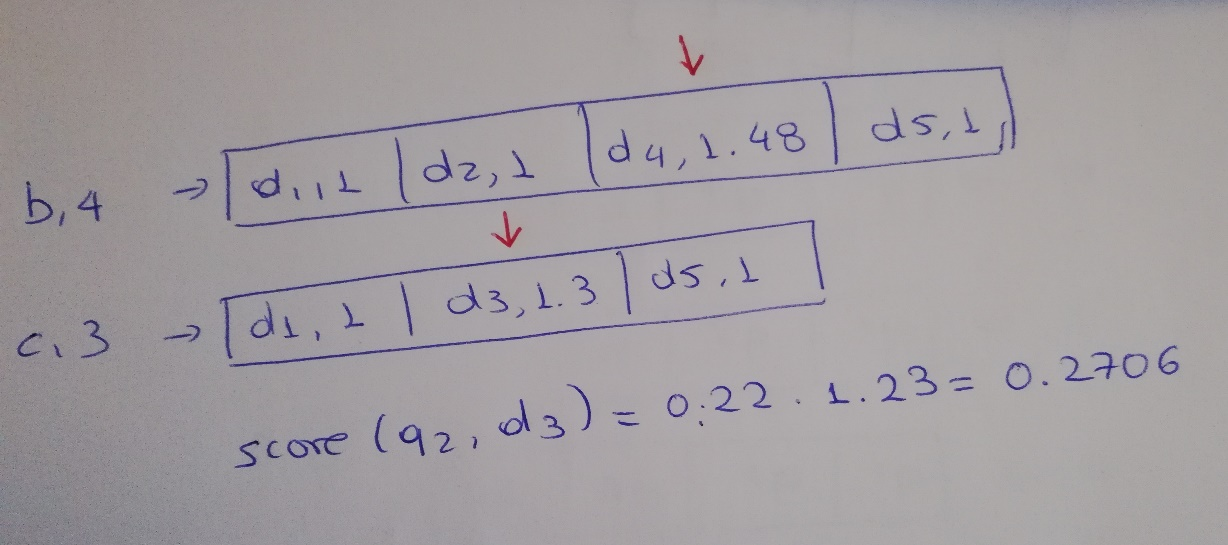 b, 4 → d1, 1 | d2, 1 | d4, 1.48 | d5, 1
c, 3 → d1, 1 | d3, 1.3 | d5, 1
score (q2, d3) = 0.22 . 1.23 = 0.2706